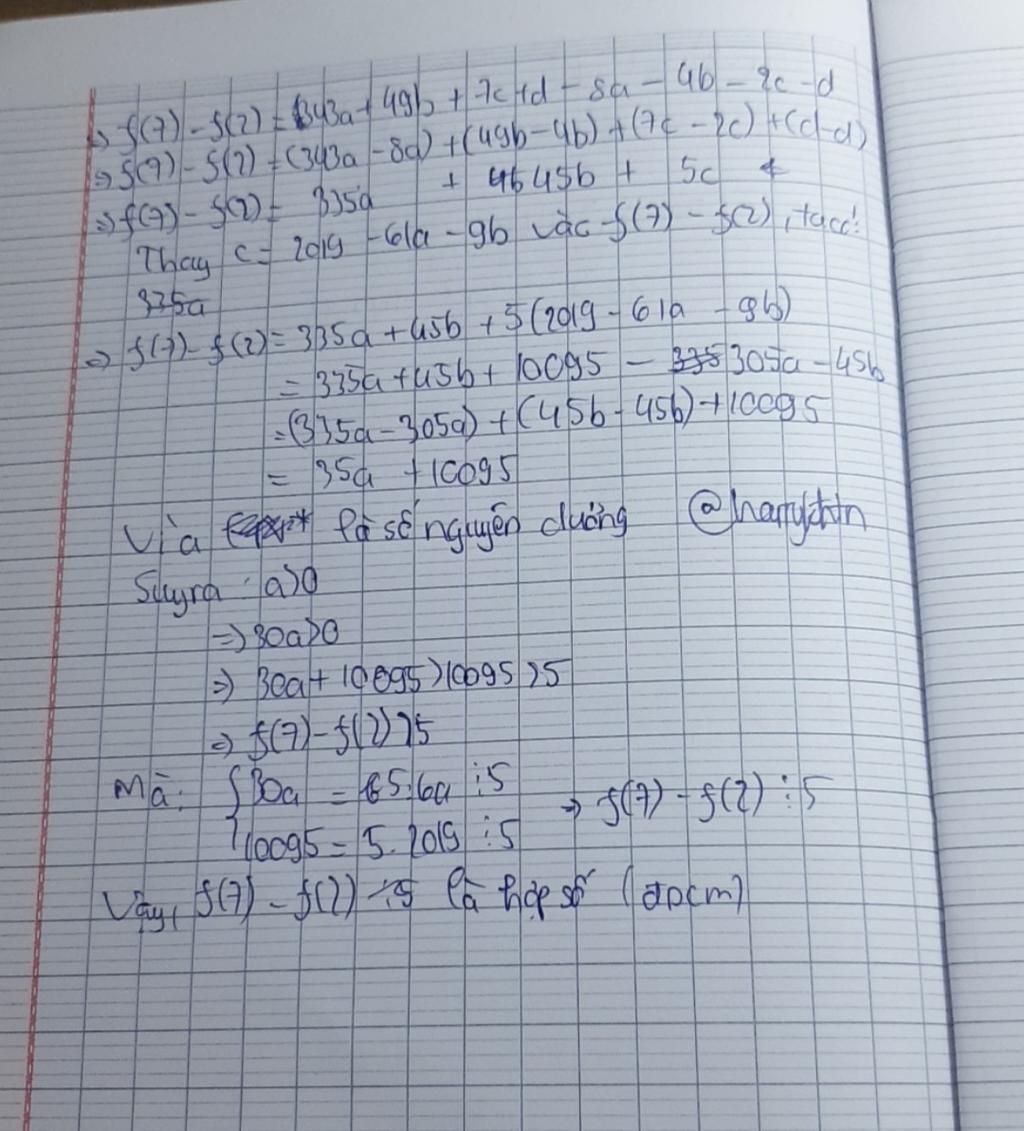 => f(7) - f(2) = 343a + 49b + 7c + d - 8a - 4b - 2c - d
=> f(7) - f(2) = (343a - 8a) + (49b - 4b) + (7c - 2c) + (d - d)
=> f(7) - f(2) = 335a + 45b + 5c
Thay c = 2019 - 61a - 9b vào f(7) - f(2), ta có:
335a
=> f(7) - f(2) = 335a + 45b + 5(2019 - 61a - 9b)
= 335a + 45b + 10095 - 305a - 45b
= (335a - 305a) + (45b - 45b) + 10095
= 35a + 10095
Vì a là số nguyên dương
Suy ra a>0
=> 30a>0
=> 30a + 10095 > 10095 > 5
=> f(7) - f(2) > 5
Mà: { 30a = 5.6a ⋮ 5
10095 = 5. 2019 ⋮ 5 => f(7) - f(2) ⋮ 5
Vậy, f(7) - f(2) là hợp số (đpcm)